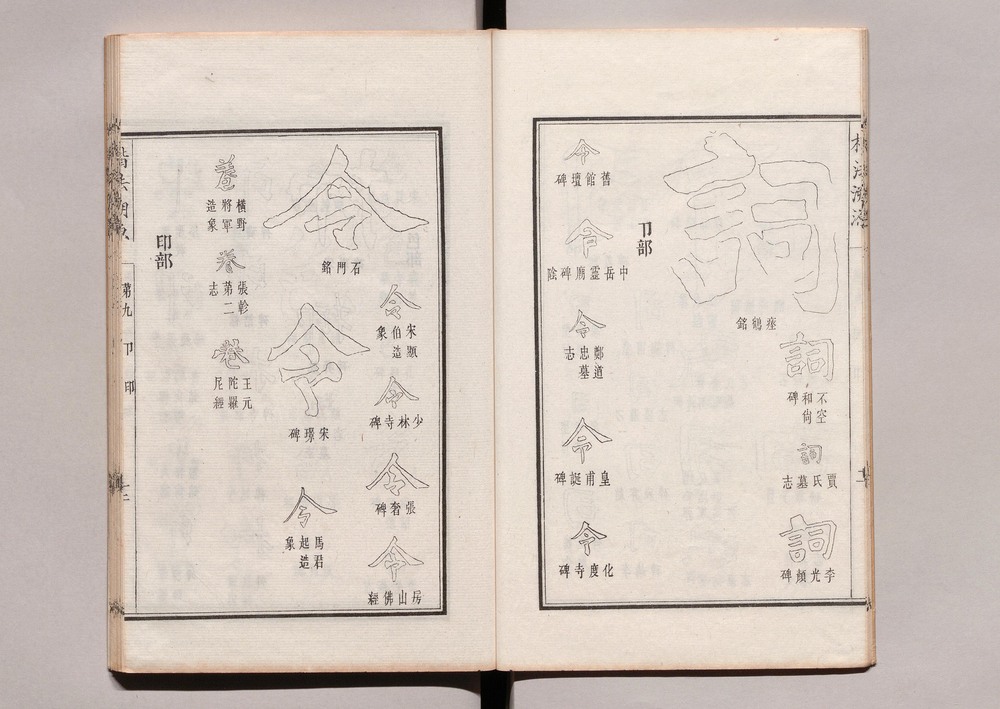 楷法溯源
詞
瘞鶴銘
詞
不空和尚碑
詞
賈氏墓志
詞
李光顏碑
卩部
令
舊館壇碑
令
中岳靈廟碑陰
令
鄭道忠墓志
令
皇甫誕碑
令
化度寺碑
令
石門銘
令
宋顯伯造象
令
少林寺碑
令
張奢碑
令
房山佛經
令
宋璟碑
令
馬君起造象
卷
橫野將軍造象
卷
張軫第二志
卷
王元陀羅尼經
印部
第九 卩 印